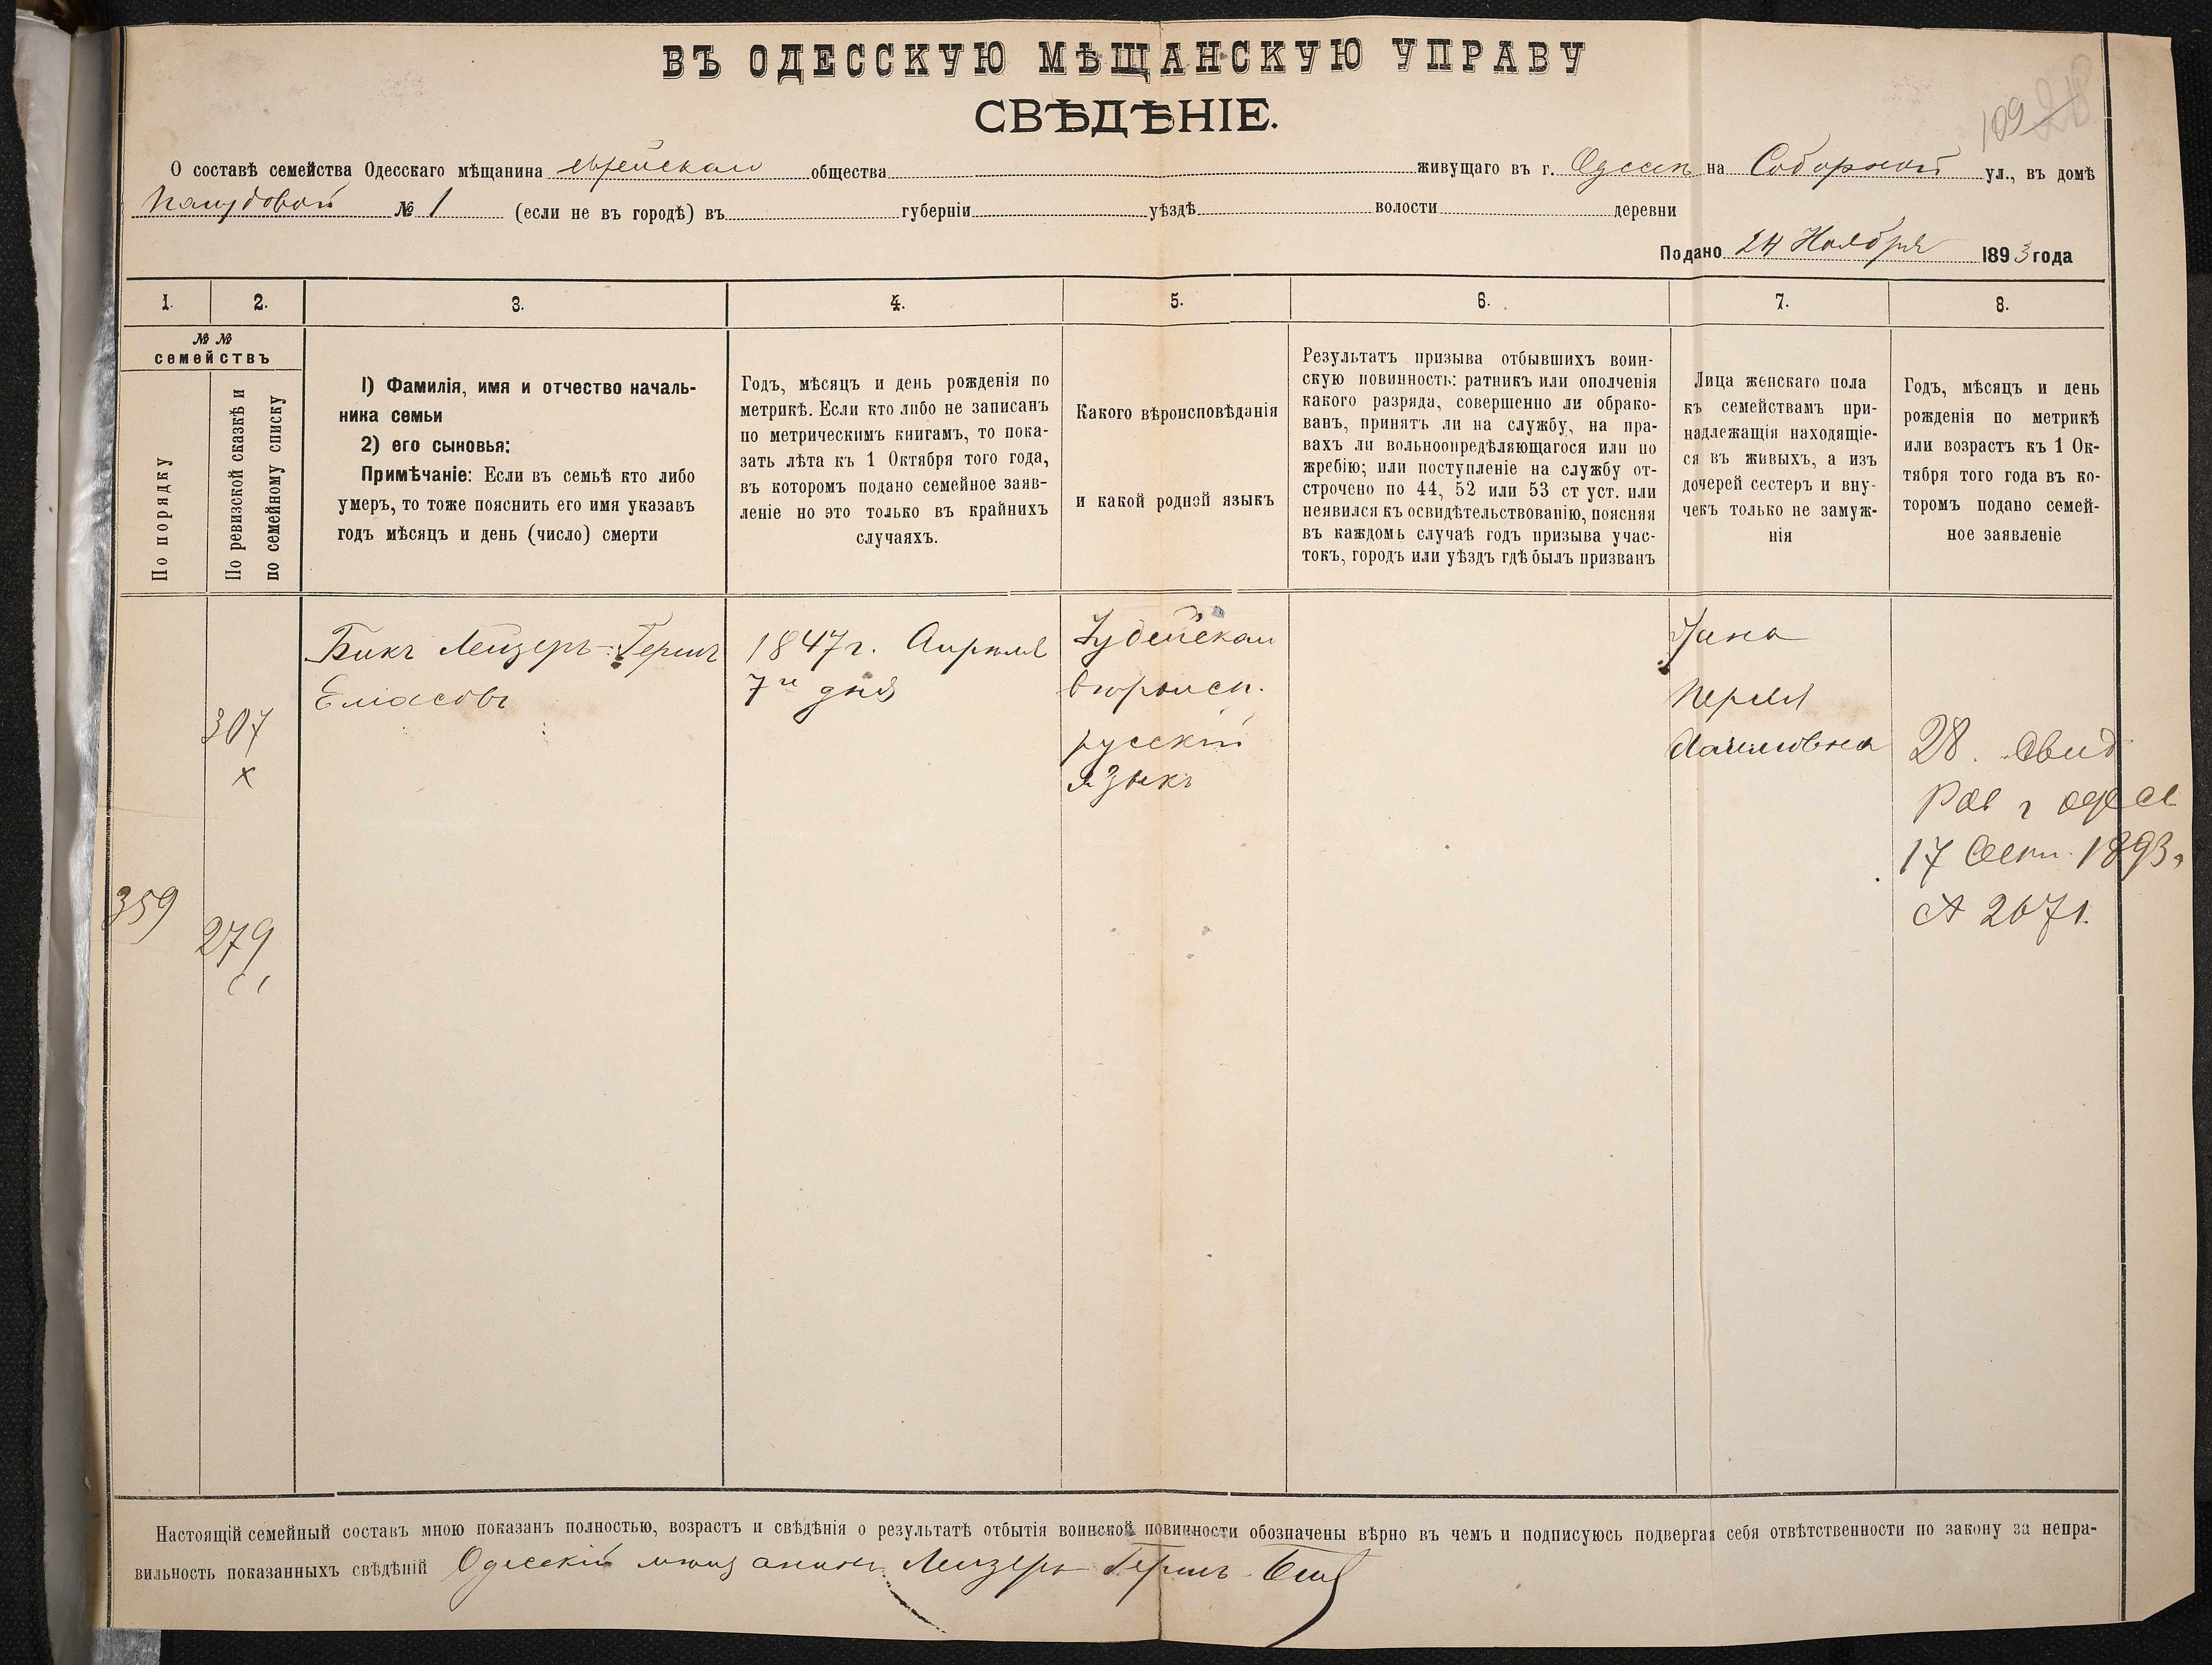 ВЪ ОДЕССКУЮ МѢЩАНСКУЮ УПРАВУ
СВѢДѢНІЕ.
109
О составѣ семейства Одесскаго мѣщанина еврейскаго общества живущаго въ г. Одессѣ на Соборной ул., въ домѣ
№ 1 (если не въ городѣ) въ губерніи уѣздѣ волости деревни
Подано 24 Ноября 1893 года
1. 2. 3. 4. 5. 6. 7. 8.
№ №
семействъ
По порядку
По ревизской сказкѣ и
по семейному списку
1) Фамилія, имя и отчество началь-
ника семьи
2) его сыновья:
Примѣчаніе: Если въ семьѣ кто либо
умеръ, то тоже пояснить его имя указавъ
годъ мѣсяцъ и день (число) смерти
Годъ, мѣсяцъ и день рожденія по
метрикѣ. Если кто либо не записанъ
по метрическимъ книгамъ, то пока-
зать лѣта къ 1 Октября того года,
въ которомъ подано семейное заяв-
леніе но это только въ крайнихъ
случаяхъ.
Какого вѣроисповѣданія
и какой родной языкъ
Результатъ призыва отбывшихъ воин-
скую повинность: ратникъ или ополченія
какого разряда, совершенно ли обрако-
ванъ, принятъ ли на службу, на пра-
вахъ ли вольноопредѣляющагося или по
жребію; или поступленіе на службу от-
строчено по 44, 52 или 53 ст уст. или
неявился къ освидѣтельствованію, поясняя
въ каждомъ случаѣ годъ призыва учас-
токъ, городъ или уѣздъ гдѣ былъ призванъ
Лица женскаго пола
къ семействамъ при-
надлежащія находящіе-
ся въ живыхъ, а изъ
дочерей сестеръ и вну-
чекъ только не замуж-
нія
Годъ, мѣсяцъ и день
рожденія по метрикѣ
или возрастъ къ 1 Ок-
тября того года въ ко-
торомъ подано семей-
ное заявленіе
359
307
х
279
Бикъ Лейзеръ-Гершъ
1847 г. Апрѣля
7 дня
Іудейскаго
вѣроисп.
русскій
языкъ
Жена
Перля
28. Свид
Рав г Одессы
17 Сент. 1893 г
№ 2671.
Настоящій семейный составъ мною показанъ полностью, возрастъ и свѣдѣнія о результатѣ отбытія воинской повинности обозначены вѣрно въ чемъ и подписуюсь подвергая себя отвѣтственности по закону за непра-
вильность показанныхъ свѣдѣній Одесскій мѣщанинъ Лейзеръ Гершъ Бикъ